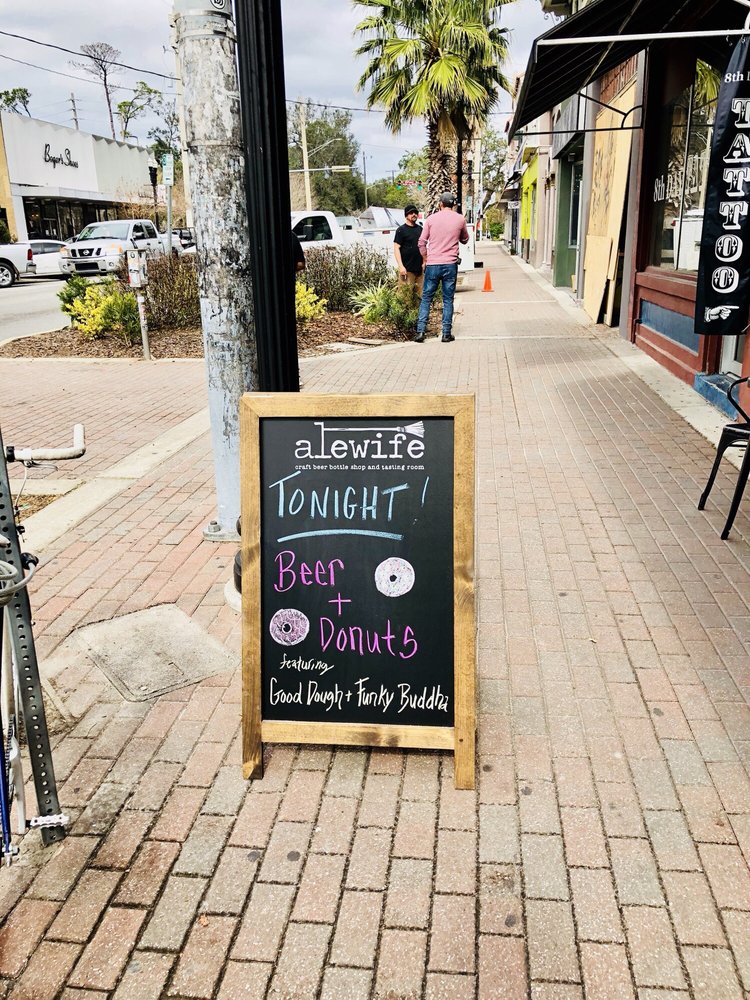 alewife
craft beer bottle shop and tasting room
TONIGHT!
Beer
+
Donuts
featuring
Good Dough + Funky Buddha
8th
TATTOO